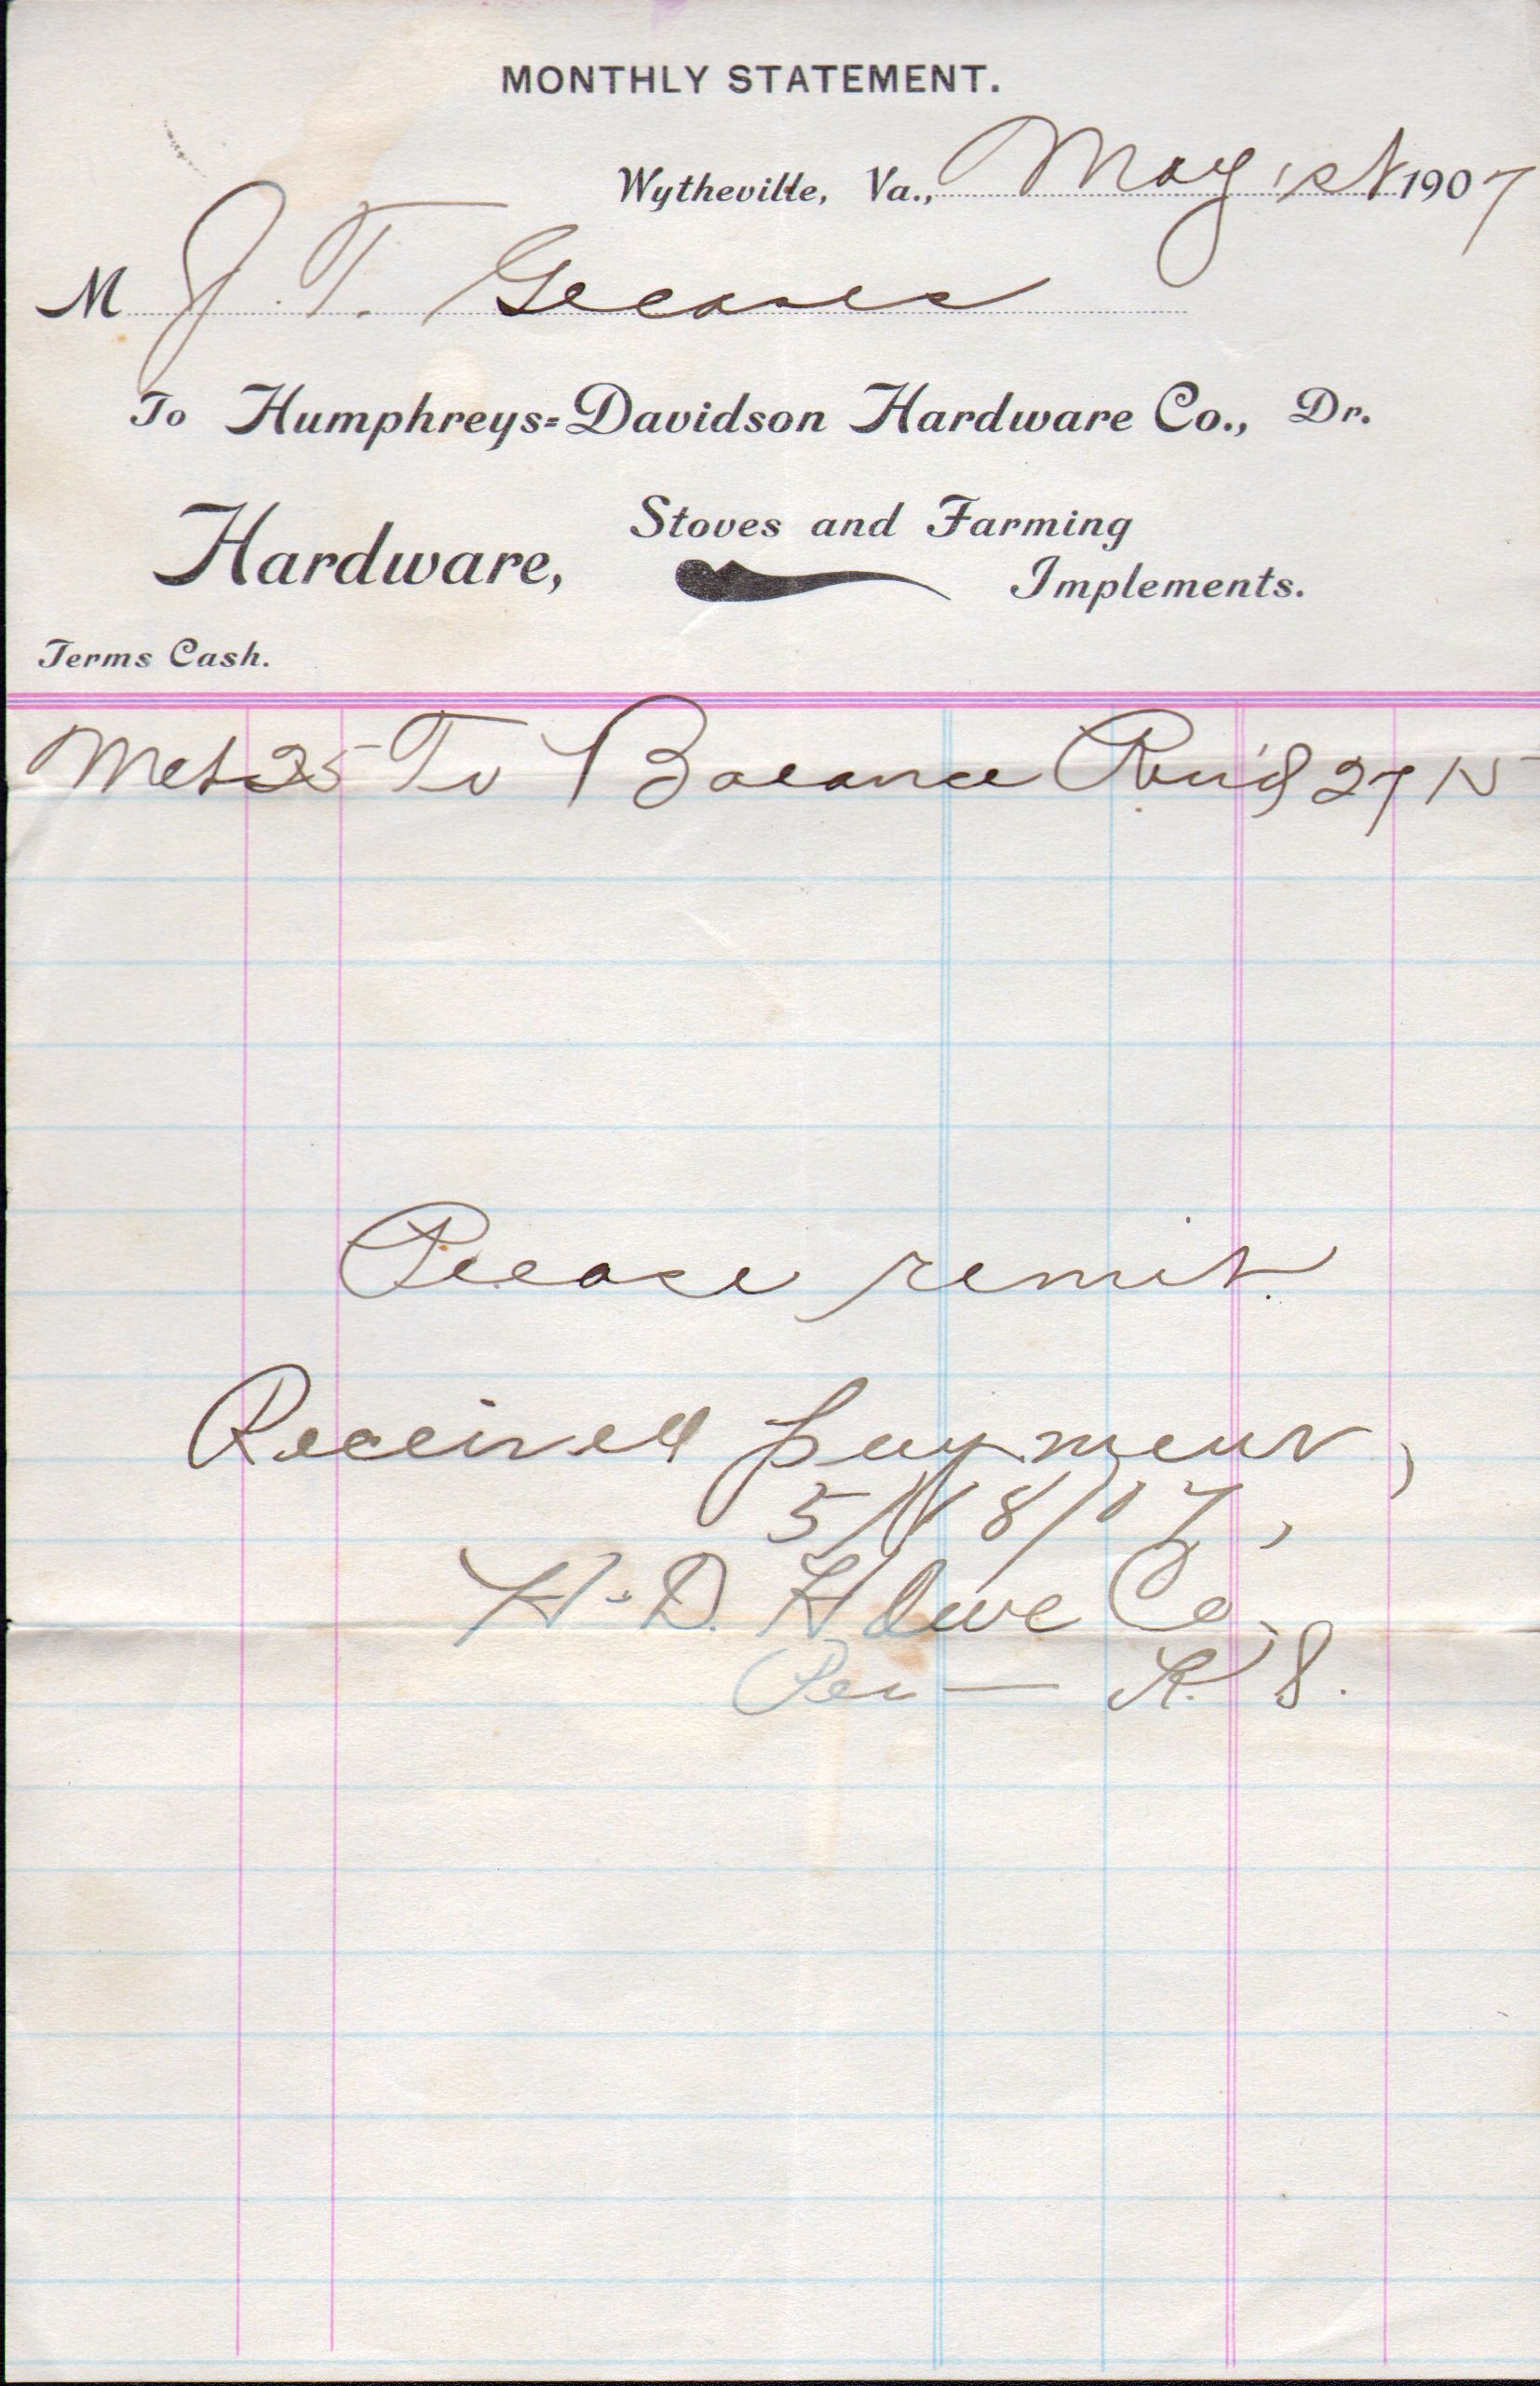 MONTHLY STATEMENT.
Wytheville, Va., May 1st 1907
M J. T. Gleaves
To Humphreys=Davidson Hardware Co., Dr.
Hardware, Stoves and Farming Implements.
Terms Cash.
25 To Balance 27 15
Please remit.
Received payment,
5/18/07,
H.D. Hdwe Co,
Per — R. S.